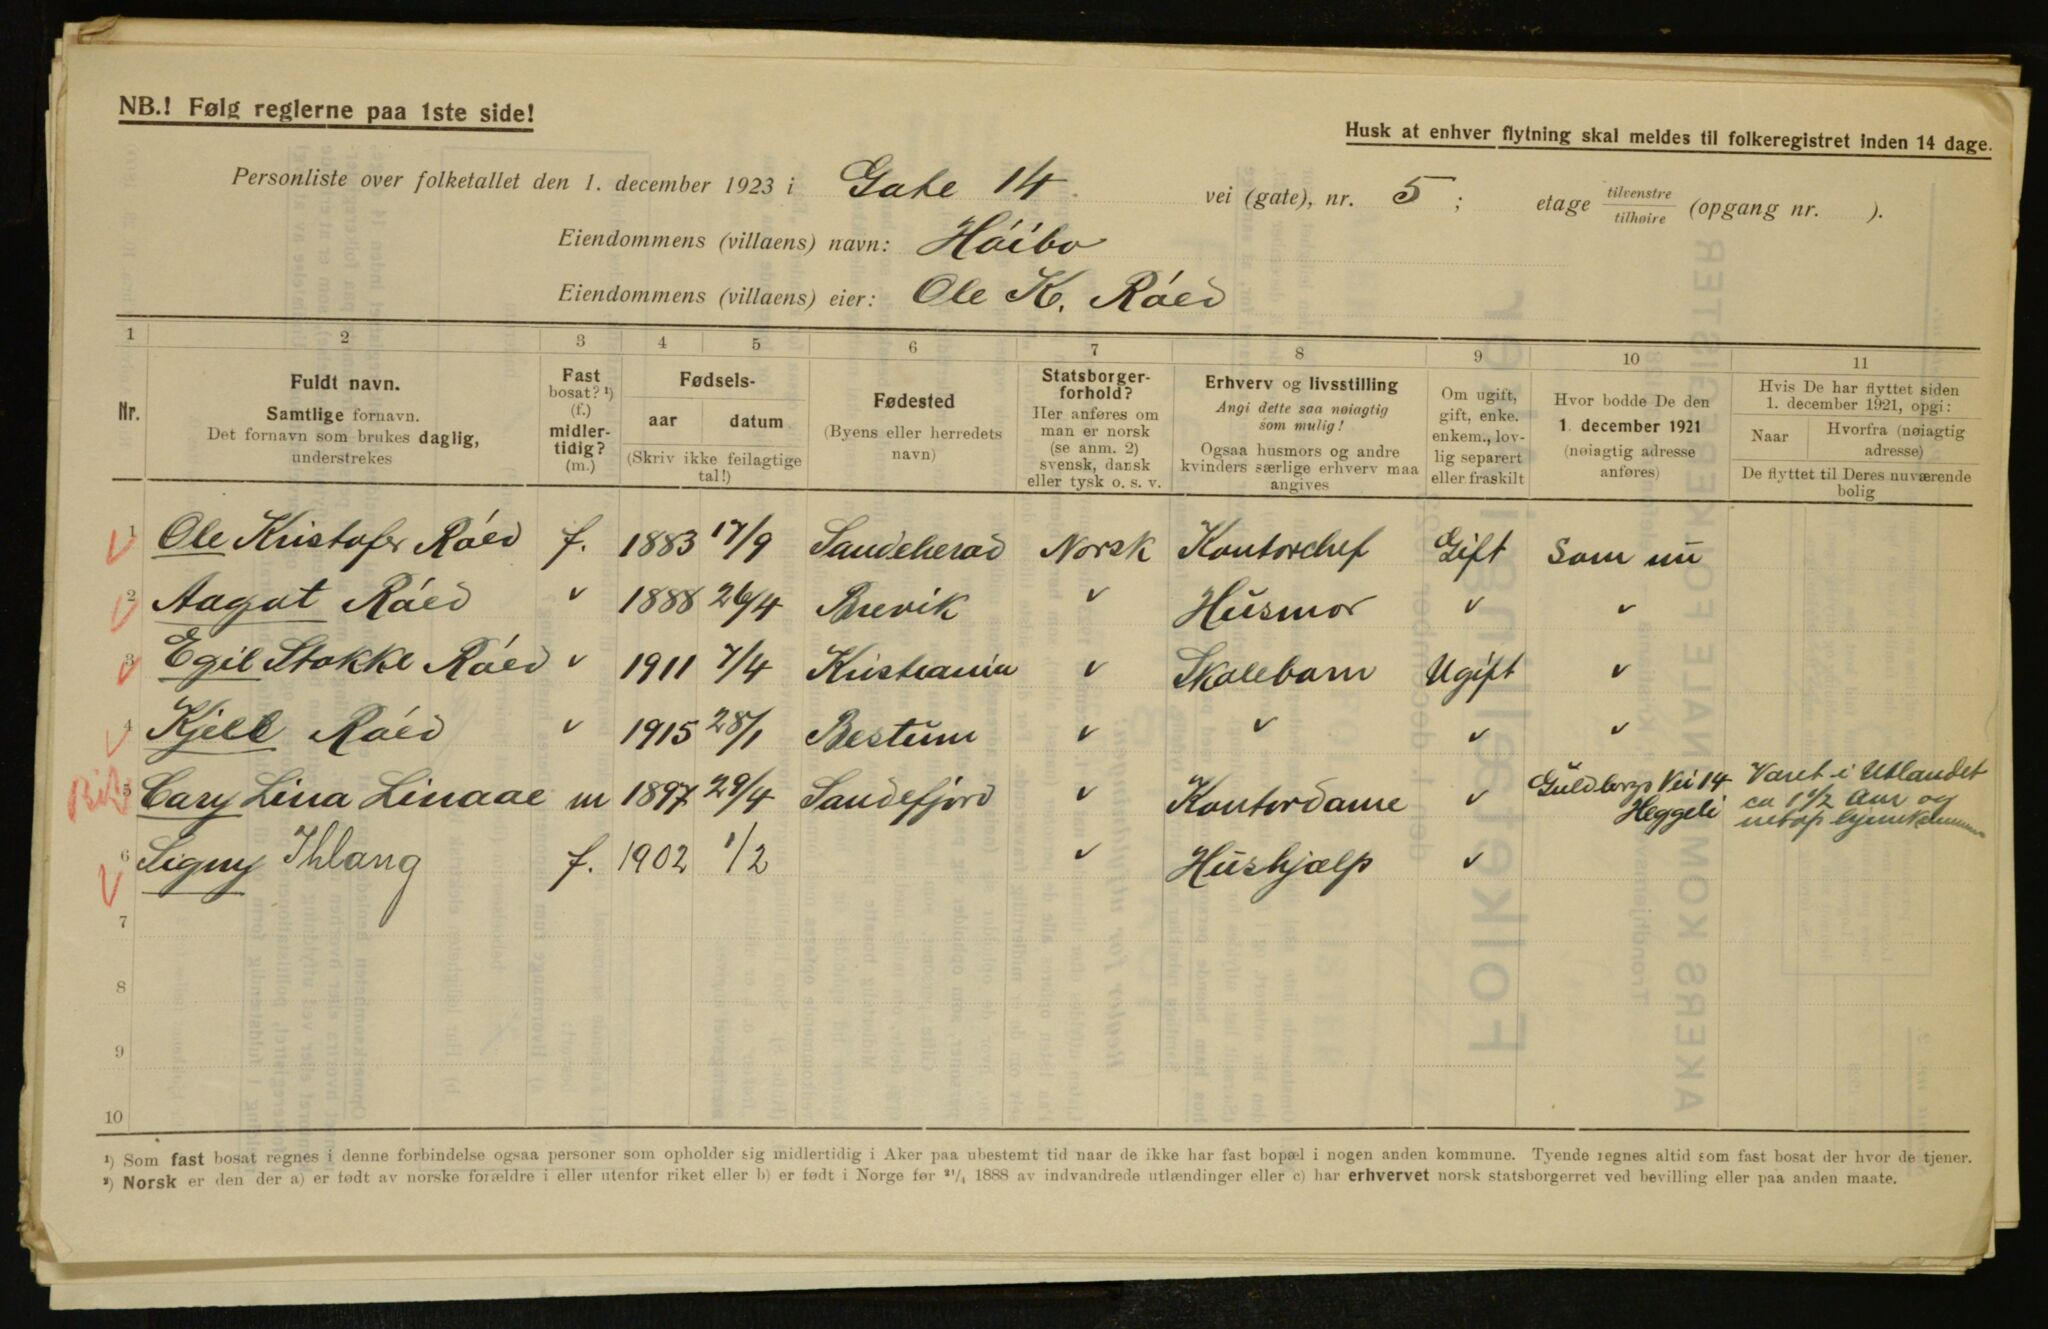 NB.! Følg reglerne paa 1ste side!
Husk at enhver flytning skal meldes til folkeregistret inden 14 dage.
Personliste over folketallet den 1. december 1923 i Gate 14 vei (gate), nr. 5 ; etage tilvenstre / tilhøire (opgang nr. ).
Eiendommens (villaens) navn: Höibo
Eiendommens (villaens) eier: Ole K. Röed
1 2 3 4 5 6 7 8 9 10 11
Nr.
Fuldt navn.
Samtlige fornavn.
Det fornavn som brukes daglig,
understrekes
Fast
bosat? ¹)
(f.)
midler-
tidig?
(m.)
Fødsels-
aar datum
(Skriv ikke feilagtige
tal!)
Fødested
(Byens eller herredets
navn)
Statsborger-
forhold?
Her anføres om
man er norsk
(se anm. 2)
svensk, dansk
eller tysk o. s. v.
Erhverv og livsstilling
Angi dette saa nøiagtig
som mulig!
Ogsaa husmors og andre
kvinders særlige erhverv maa
angives
Om ugift,
gift, enke.
enkem., lov-
lig separert
eller fraskilt
Hvor bodde De den
1. december 1921
(nøiagtig adresse
anføres)
Hvis De har flyttet siden
1. december 1921, opgi:
Naar Hvorfra (nøiagtig
adresse)
De flyttet til Deres nuværende
bolig
1 Ole Kristofer Röed f. 1883 17/9 Sandeherad Norsk Kontorchef Gift Som nu
2 Aagot Röed v 1888 26/4 Brevik v Husmor v v
3 Egil Stokke Röed v 1911 7/4 Kristiania v Skolebarn Ugift v
4 Kjell Röed v 1915 28/1 Bestum v v v v
5 Cary Lina Linaae m 1897 29/4 Sandefjord v Kontordame v Guldbergs Vei 14 Været i Utlandet
Heggeli ca 1 1/2 Aar og
netop hjemkommen
6 Signy Ihlang f. 1902 1/2 v Hushjælp v
7
8
9
10
¹) Som fast bosat regnes i denne forbindelse ogsaa personer som opholder sig midlertidig i Aker paa ubestemt tid naar de ikke har fast bopæl i nogen anden kommune. Tyende regnes altid som fast bosat der hvor de tjener.
²) Norsk er den der a) er født av norske forældre i eller utenfor riket eller b) er født i Norge før ²¹/₄ 1888 av indvandrede utlændinger eller c) har erhvervet norsk statsborgerret ved bevilling eller paa anden maate.